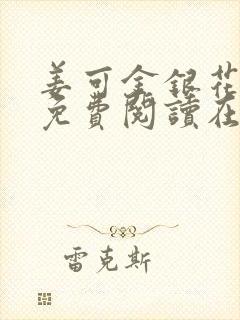 姜可金銀花
免費閱讀在
雷克斯